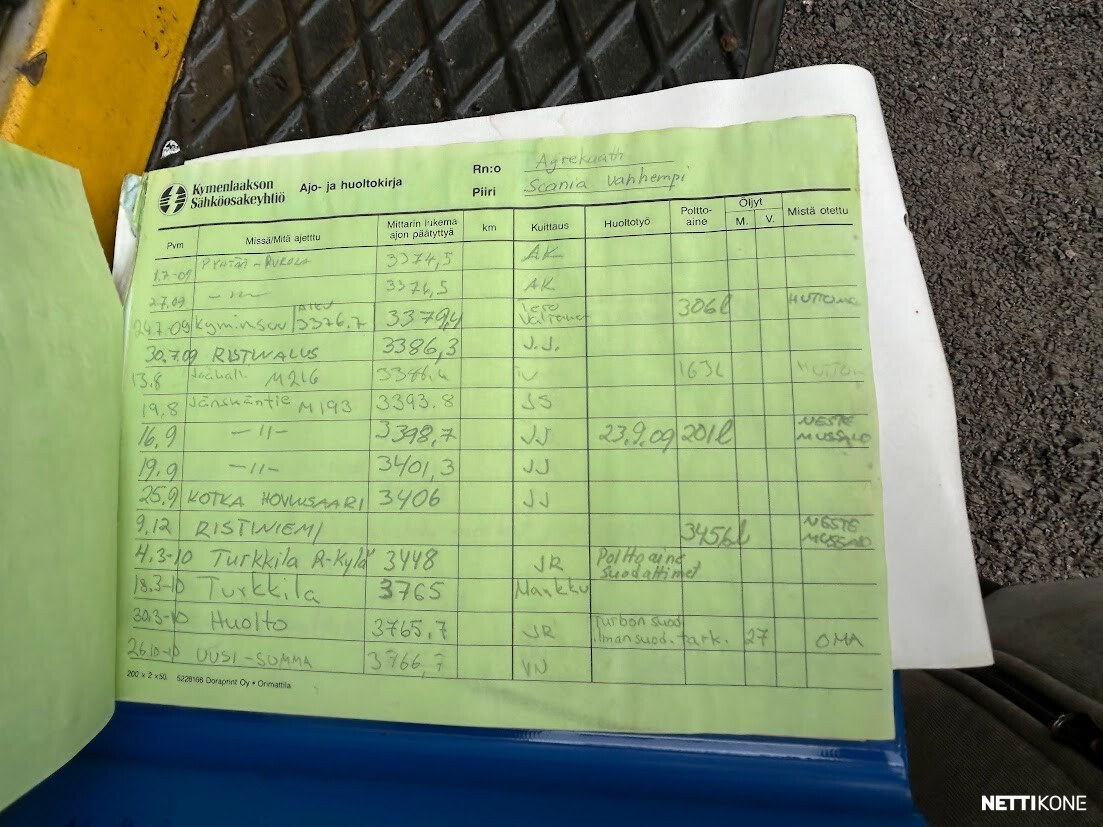 Kymenlaakson
Sähköosakeyhtiö
Ajo- ja huoltokirja
Rn:o
Piiri Scania vanhempi
Pvm Missä/Mitä ajetttu Mittarin lukema ajon päätyttyä km Kuittaus Huoltotyö Poltto-aine Öljyt M. V. Mistä otettu
3374,5 AK
27.09 -"- 3376,5 AK
24.7-09 Kyminsuu 3376.7 3379,4 306l HUITOMO
30.7.09 RISTINALUS 3386,3 J.J.
13.8 M216 163L
19.8 Jänskäntie M193 3393.8 JS
16.9 -11- 3398,7 JJ 23.9.09 201l NESTE MUSSALO
19.9 -11- 3401,3 JJ
25.9 KOTKA HOVINSAARI 3406 JJ
9.12 RISTINIEMI 3456l NESTE MUSSALO
4.3-10 Turkkila R-Kylä 3448 JR Polttoaine suodattimet
18.3-10 Turkkila 3765 Markku
30.3-10 Huolto 3765,7 JR Turbon suod. ilmansuod. tark. 27 OMA
26.10-10 UUSI-SUMMA 3766,7 VN
200 x 2 x 50. 5228166 Doraprint Oy • Orimattila
NETTIKONE